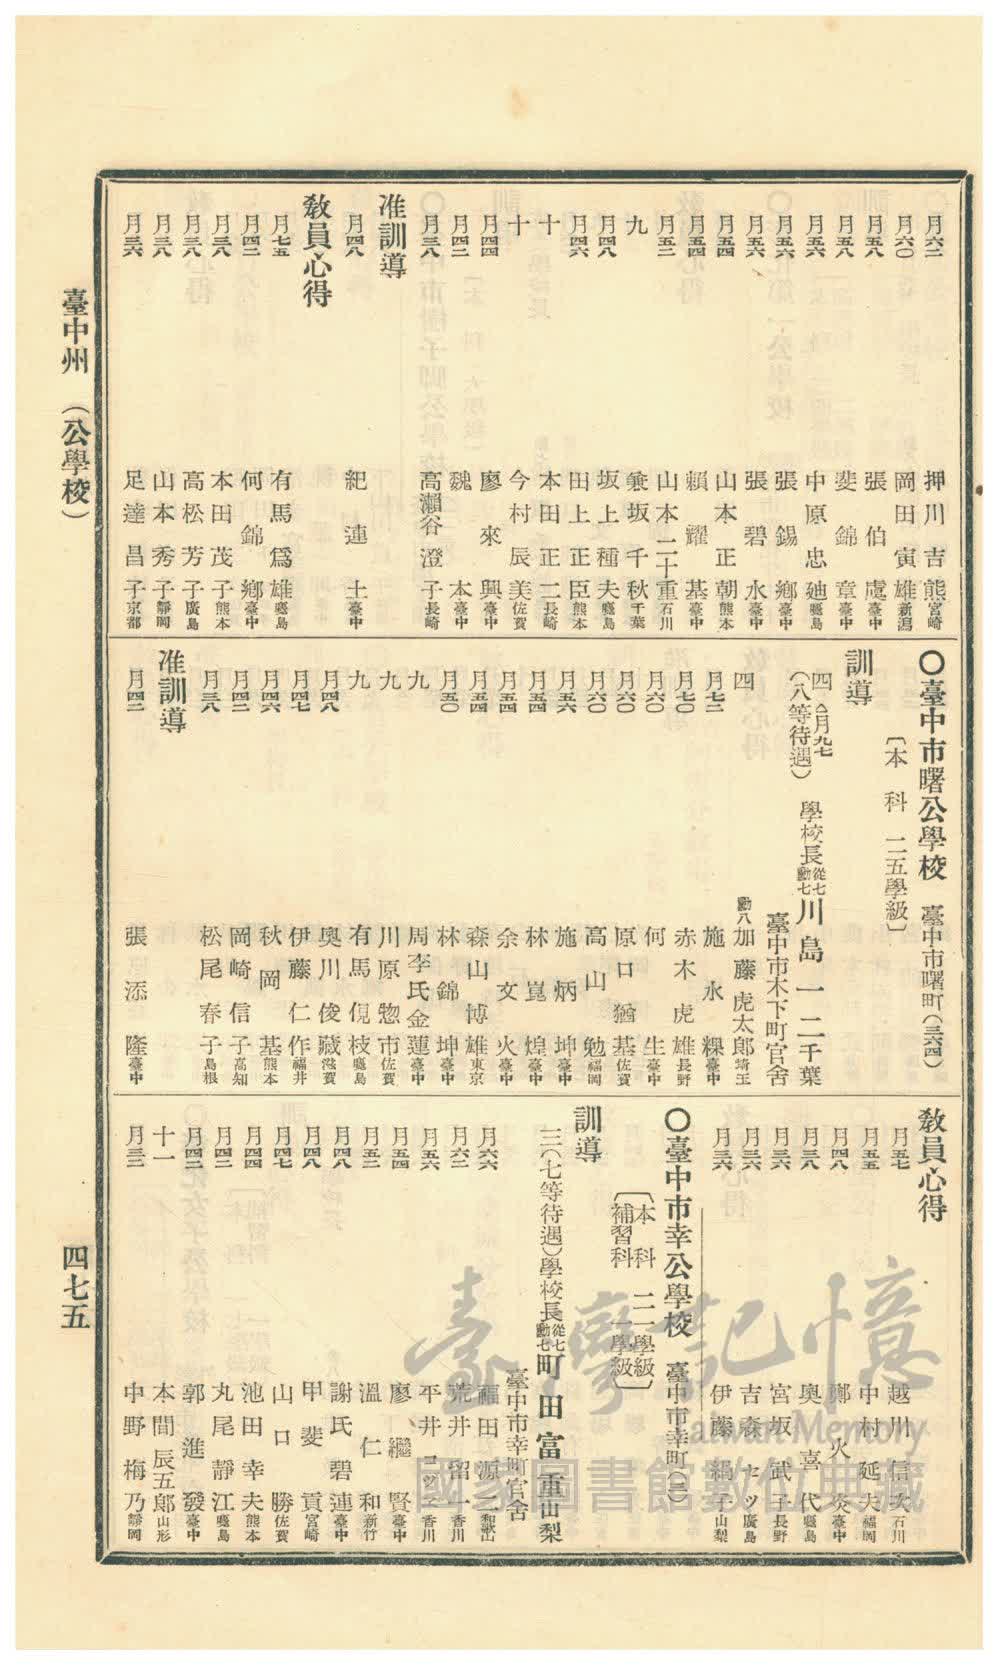 臺中州 (公學校)
四七五
月六二 押川吉熊 宮崎
月六〇 岡田寅雄 新潟
月五八 張伯處 臺中
月五八 斐錦章 臺中
月五六 中原忠廸 鹿島
月五六 張錫鄉 臺中
月五六 張碧永 臺中
月五四 山本正朝 熊本
月五四 賴耀基 臺中
月五二 山本二十重 石川
九 兼坂千秋 千葉
月四八 坂上種夫 鹿島
月四六 田上正臣 熊本
十 本田正二 長崎
十 今村辰美 佐賀
月四四 廖來興 臺中
月四二 魏本 臺中
月三八 高瀨谷澄子 長崎
准訓導
月四八 紀連土 臺中
教員心得
月七五 有馬爲雄 鹿島
月四二 何錦鄉 臺中
月三八 本田茂子 熊本
月三八 高松芳子 廣島
月三八 山本秀子 靜岡
月三六 足達昌子 京都
〇臺中市曙公學校 臺中市曙町(三六四)
〔本科 二五學級〕
訓導
四 八月九七
(八等待遇) 學校長 從七勳七 川島一二 千葉
臺中市木下町官舍
四 勳八 加藤虎太郎 埼玉
月七二 施永粿 臺中
月七〇 赤木虎雄 長野
月六〇 何生 臺中
月六〇 原口猶基 佐賀
月六〇 高山勉 福岡
月五六 施炳坤 臺中
月五四 林崑煌 臺中
月五四 余文火 臺中
月五四 森山博雄 東京
月五〇 林錦坤 臺中
九 周李氏金蓮 臺中
九 川原惣市 佐賀
九 有馬俔枝 鹿島
月四八 奧川俊藏 滋賀
月四七 伊藤仁作 福井
月四六 秋岡基 熊本
月四二 岡崎信子 高知
月三八 松尾春子 島根
准訓導
月四二 張添隆 臺中
教員心得
月五七 越川信次 石川
月五五 中村延夫 福岡
月四八 鄭火炎 臺中
月三八 奧喜代 鹿島
月三六 宮坂武子 長野
月三六 吉森セツ 廣島
月三六 伊藤絹子 山梨
〇臺中市幸公學校 臺中市幸町(三)
〔本科 二一學級
補習科 一學級〕
訓導
三(七等待遇)學校長 從七勳七 町田富重 山梨
臺中市幸町官舍
月六六 福田源二 和歌山
月六二 荒井留一 香川
月五六 平井コツ子 香川
月五四 廖繼賢 臺中
月五二 溫仁和 新竹
月四八 謝氏碧連 臺中
月四八 甲斐貢 宮崎
月四七 山口勝 佐賀
月四四 池田幸夫 熊本
月四四 丸尾靜江 鹿島
月四二 郭進發 臺中
十一 本間辰五郎 山形
月三二 中野梅乃 靜岡
臺灣記憶
Taiwan Memory
國家圖書館數位典藏